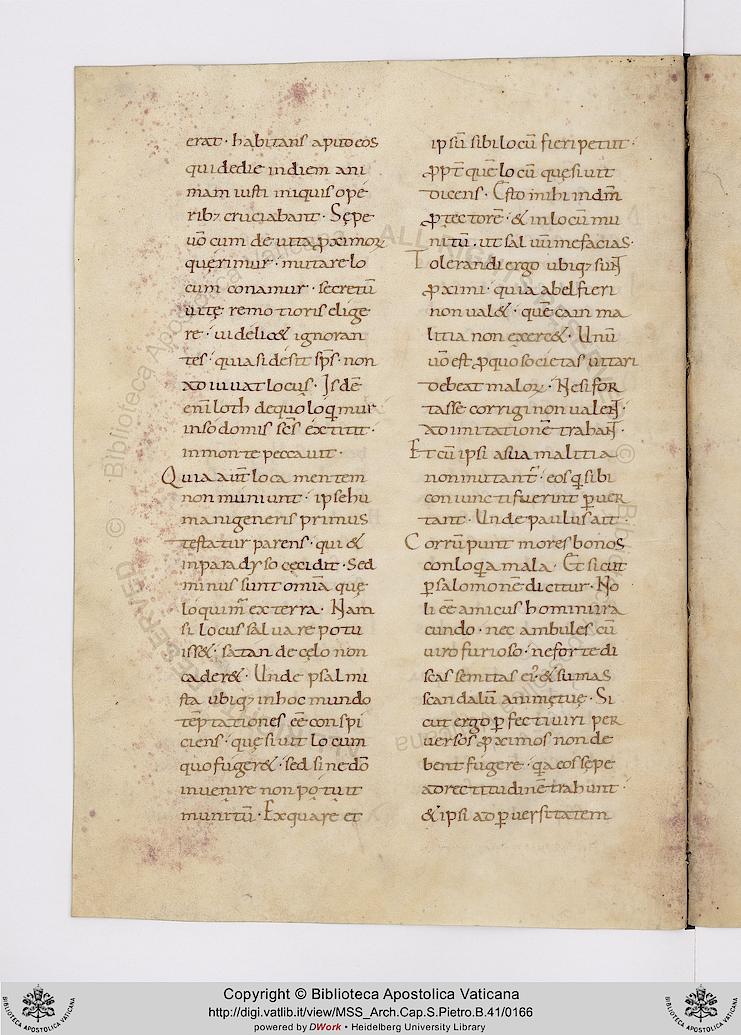 erat · habitans apud eos
qui de die in diem ani
mam iusti iniquis ope
rib; cruciabant · Sępe
uo cum de uita ꝓximoꝝ
querimur · mutare lo
cum conamur · secretū
uitę remotioris elige
re · uidelic& ignoran
tes · quia si desit sps̄ · non
adiuuat locus · Isdē
enī loth de quo loqimur
in sodomis sc̄s extitit ·
in monte peccauit ·
Quia aut̄ loca mentem
non muniunt · ipse hu
mani generis primus
testatur parens · qui &
in paradyso cecidit · Sed
minus sunt omīa quę
loquimur̄ ex terra · Nam
si locus saluare potu
iss& · satan de cęlo non
cader& · Unde psalmi
sta ubiq; in hoc mundo
tēptationes ēē conspi
ciens · quęsiuit locum
quo fuger& · sed sine dō
inuenire non potuit
munitū · Ex qua re et
ipsū sibi locū fieri petiit ·
ꝓpt̄ quē locū quęsiuit
dicens · Esto mihi in dm̄
ꝓtectorē · & in locū mu
nitū · ut saluū me facias ·
Tolerandi ergo ubiq; sunt
ꝓximi · quia abel fieri
non ual& · quē cain ma
litia non exerc& · Unū
uo est ꝓ quo societas uitari
debeat maloꝝ · Ne si for
tasse corrigi non ualent ·
ad imitationē trahant ·
Et cū ipsi a sua malitia
non mutant̄ · eos q̄ sibi
coniuncti fuerint ꝑuer
tant · Unde paulus ait ·
Corrūpunt mores bonos
conloqia mala · Et sicut
ꝑ salomonē dicitur · No
li ēē amicus homini ira
cundo · nec ambules cū
uiro furioso · ne forte di
scas semitas ei' · & sumas
scandalū animę tuę · Si
cut ergo ꝑfecti uiri per
uersos ꝓximos non de
bent fugere · qa eos sępe
ad rectitudinē trahunt ·
& ipsi ad ꝑuersitatem
Copyright © Biblioteca Apostolica Vaticana
http://digi.vatlib.it/view/MSS_Arch.Cap.S.Pietro.B.41/0166
powered by DWork • Heidelberg University Library